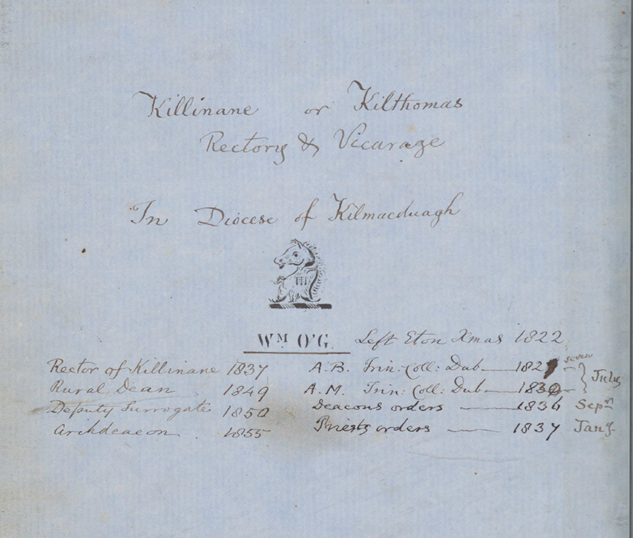 Killinane or Kilthomas
Rectory & Vicarage
In Diocese of Kilmacduagh
Wᴹ O'G. Left Eton Xmas 1822
Rector of Killinane 1837 A.B. Trin: Coll: Dub 1827 seven
Rural Dean 1849 A.M. Trin: Coll: Dub 1832 } July
Deputy Surrogate 1850 Deacons orders 1836 Sepʳ
Archdeacon 1855 Priests orders 1837 Jany.